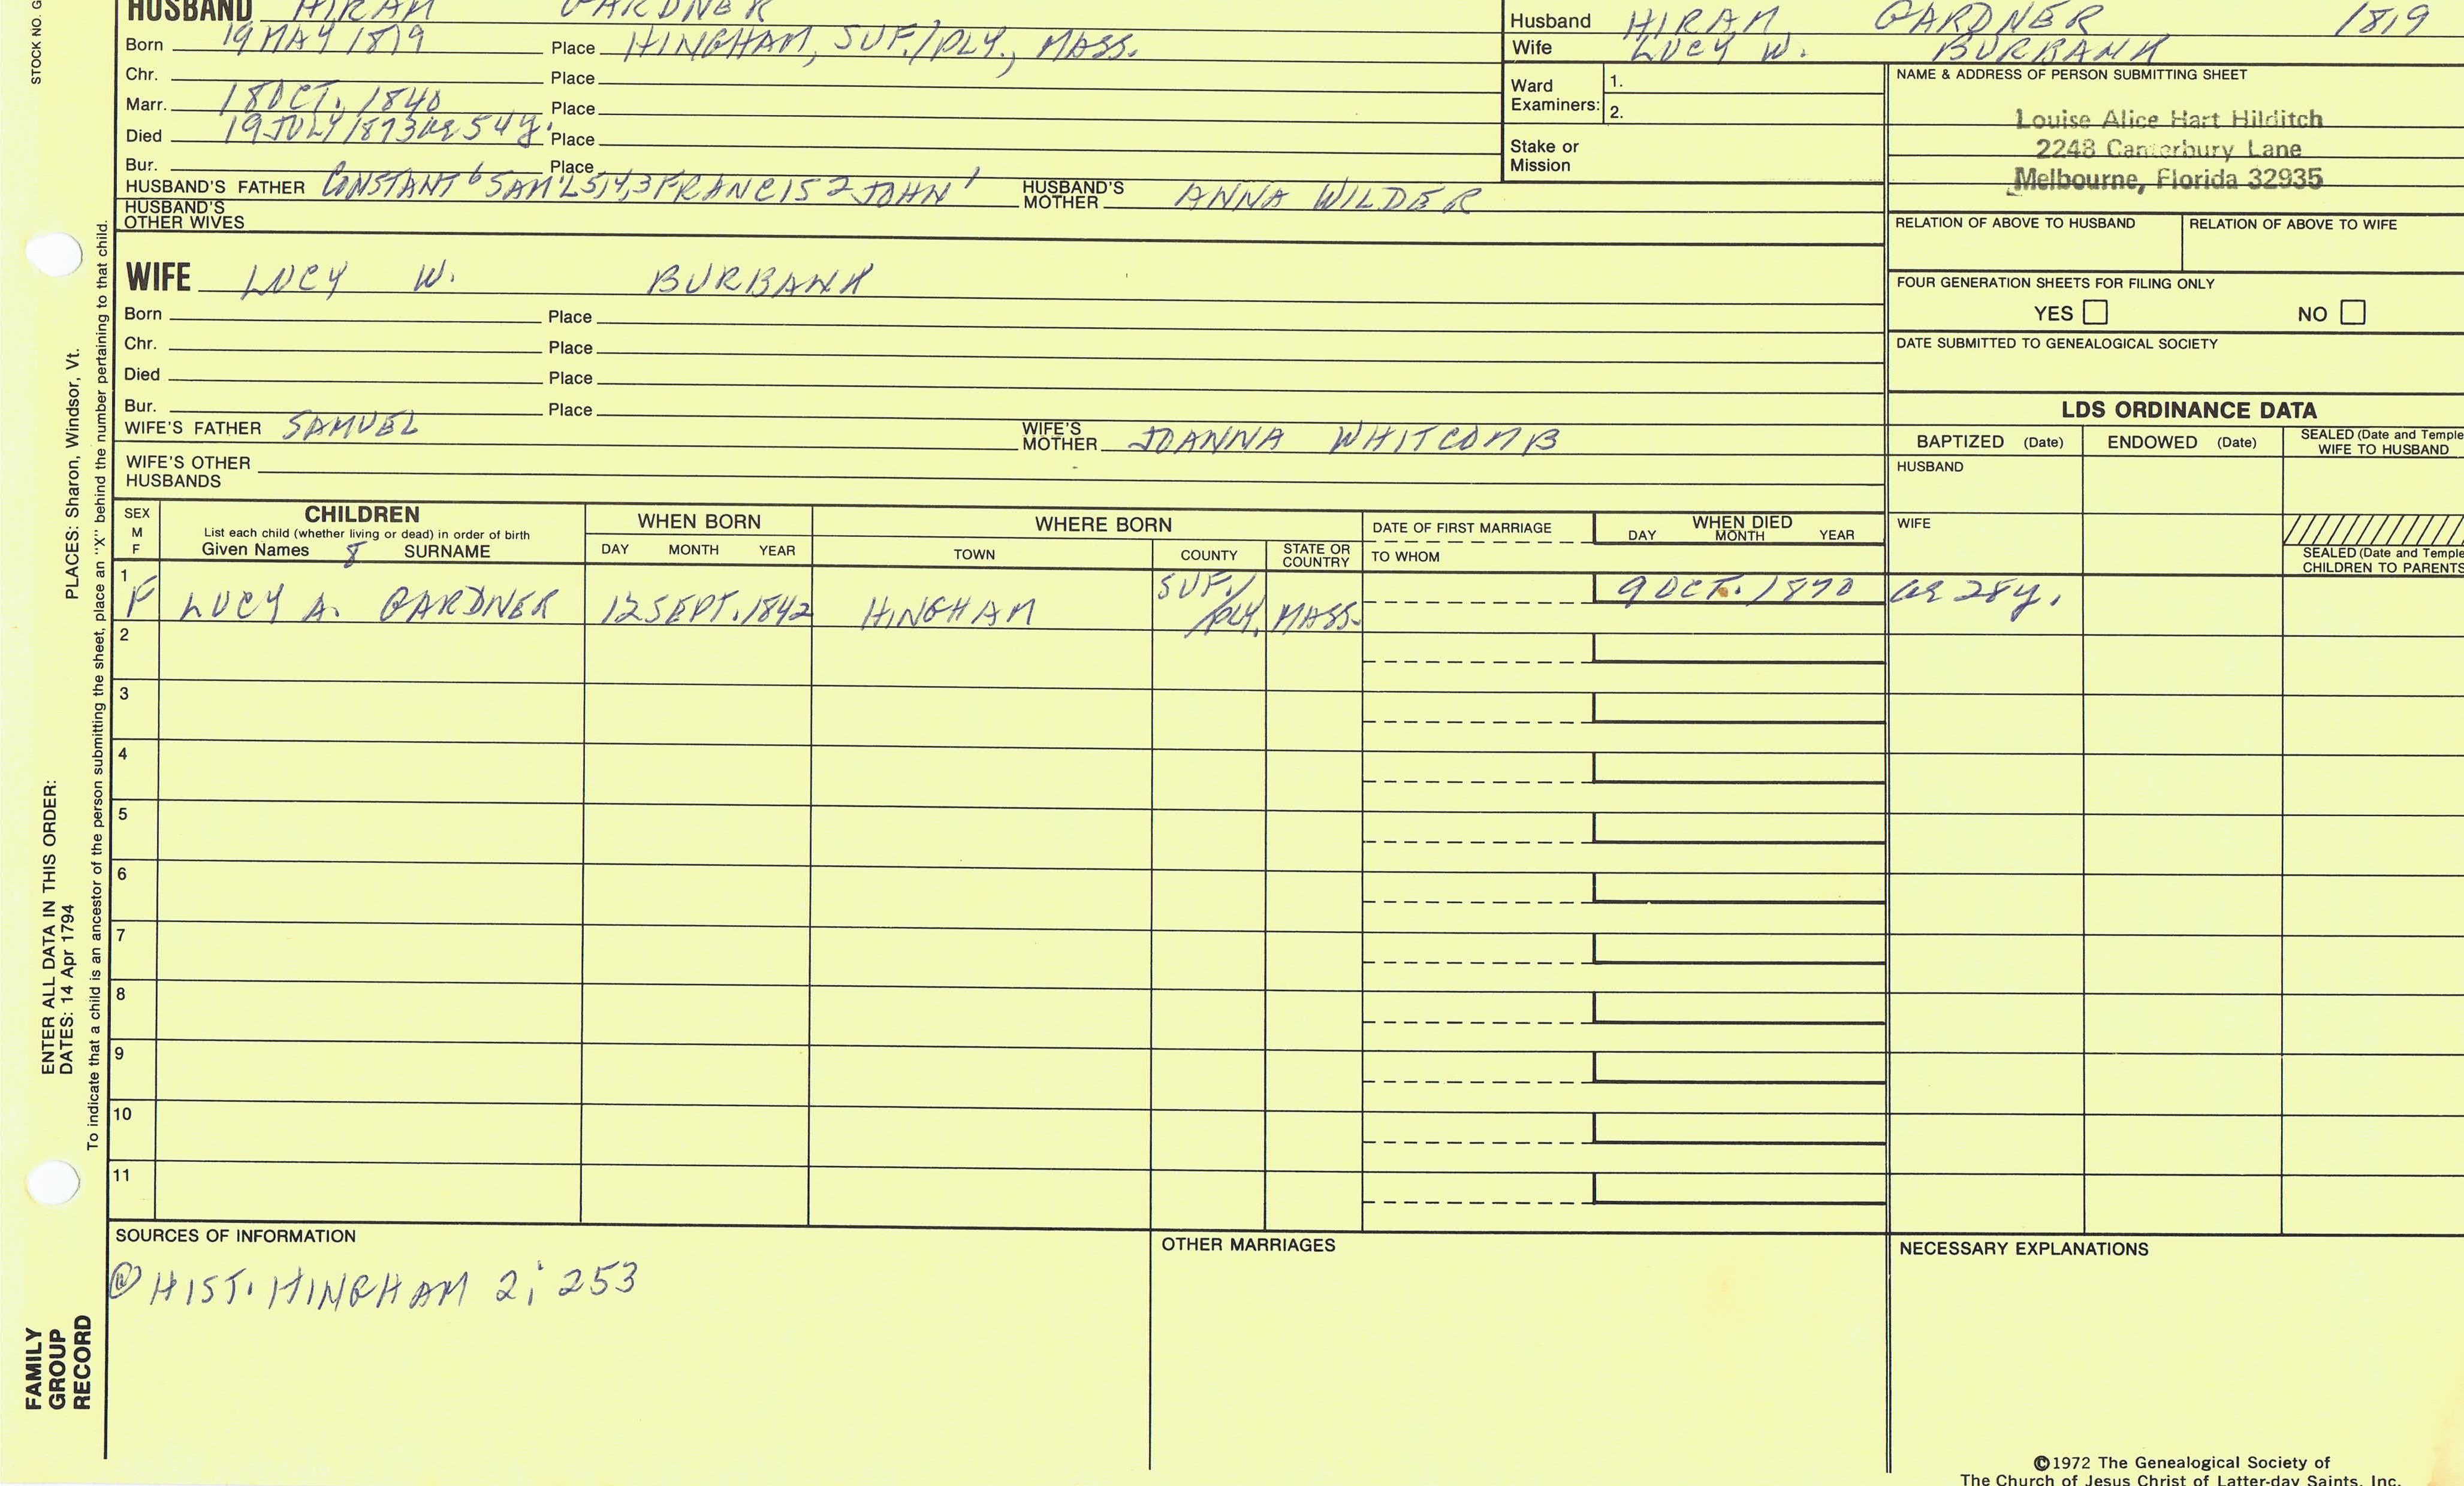 STOCK NO. G
HUSBAND HIRAM GARDNER
Born 19 MAY 1819 Place HINGHAM, SUF./PLY., MASS.
Chr. Place
Marr. 18 OCT. 1840 Place
Died 19 JULY 1873 ae 54 y. Place
Bur. Place
HUSBAND'S FATHER CONSTANT 6 SAM'L 5,4,3 FRANCIS 2 JOHN 1 HUSBAND'S MOTHER ANNA WILDER
HUSBAND'S OTHER WIVES
Husband HIRAM GARDNER 1819
Wife LUCY W. BURBANK
Ward Examiners: 1.
2.
Stake or Mission
NAME & ADDRESS OF PERSON SUBMITTING SHEET
Louise Alice Hart Hilditch
2248 Canterbury Lane
Melbourne, Florida 32935
RELATION OF ABOVE TO HUSBAND RELATION OF ABOVE TO WIFE
FOUR GENERATION SHEETS FOR FILING ONLY
YES NO
DATE SUBMITTED TO GENEALOGICAL SOCIETY
WIFE LUCY W. BURBANK
Born Place
Chr. Place
Died Place
Bur. Place
WIFE'S FATHER SAMUEL WIFE'S MOTHER JOANNA WHITCOMB
WIFE'S OTHER HUSBANDS
LDS ORDINANCE DATA
BAPTIZED (Date) ENDOWED (Date) SEALED (Date and Temple
WIFE TO HUSBAND
HUSBAND
WIFE
SEALED (Date and Temple
CHILDREN TO PARENTS
SEX
M
F
CHILDREN
List each child (whether living or dead) in order of birth
Given Names 8 SURNAME
WHEN BORN
DAY MONTH YEAR
WHERE BORN
TOWN COUNTY STATE OR COUNTRY
DATE OF FIRST MARRIAGE
TO WHOM
WHEN DIED
DAY MONTH YEAR
1 F LUCY A. GARDNER 12 SEPT. 1842 HINGHAM SUF./PLY. MASS. 9 OCT. 1870 ae 28 y.
2
3
4
5
6
7
8
9
10
11
SOURCES OF INFORMATION
@ HIST. HINGHAM 2; 253
OTHER MARRIAGES
NECESSARY EXPLANATIONS
©1972 The Genealogical Society of
The Church of Jesus Christ of Latter-day Saints, Inc.
PLACES: Sharon, Windsor, Vt.
To indicate that a child is an ancestor of the person submitting the sheet, place an "X" behind the number pertaining to that child.
ENTER ALL DATA IN THIS ORDER:
DATES: 14 Apr 1794
FAMILY
GROUP
RECORD